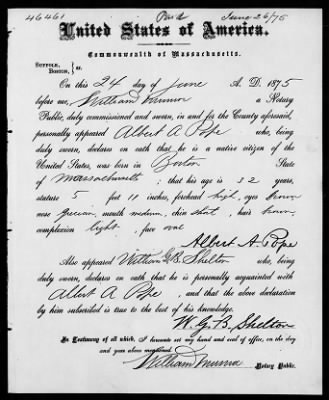 46461 Paid June 26/75
United States of America.
Commonwealth of Massachusetts.
SUFFOLK,
BOSTON, } ss.
On this 24 day of June A. D. 1875
before me, William Munroe a Notary
Public, duly commissioned and sworn, in and for the County aforesaid,
personally appeared Albert A Pope who, being
duly sworn, declares on oath that he is a native citizen of the
United States, was born in Boston State
of Massachusetts; that his age is 32 years,
stature 5 feet 11 inches, forehead high, eyes brown
nose Grecian, mouth medium, chin short, hair brown,
complexion light, face oval
Albert A. Pope
Also appeared William G. B. Shelton who, being
duly sworn, declares on oath that he is personally acquainted with
Albert A. Pope, and that the above declaration
by him subscribed is true to the best of his knowledge.
W. G. B. Shelton
In Testimony of all which, I hereunto set my hand and seal of office, on the day
and year above mentioned.
William Munroe Notary Public.